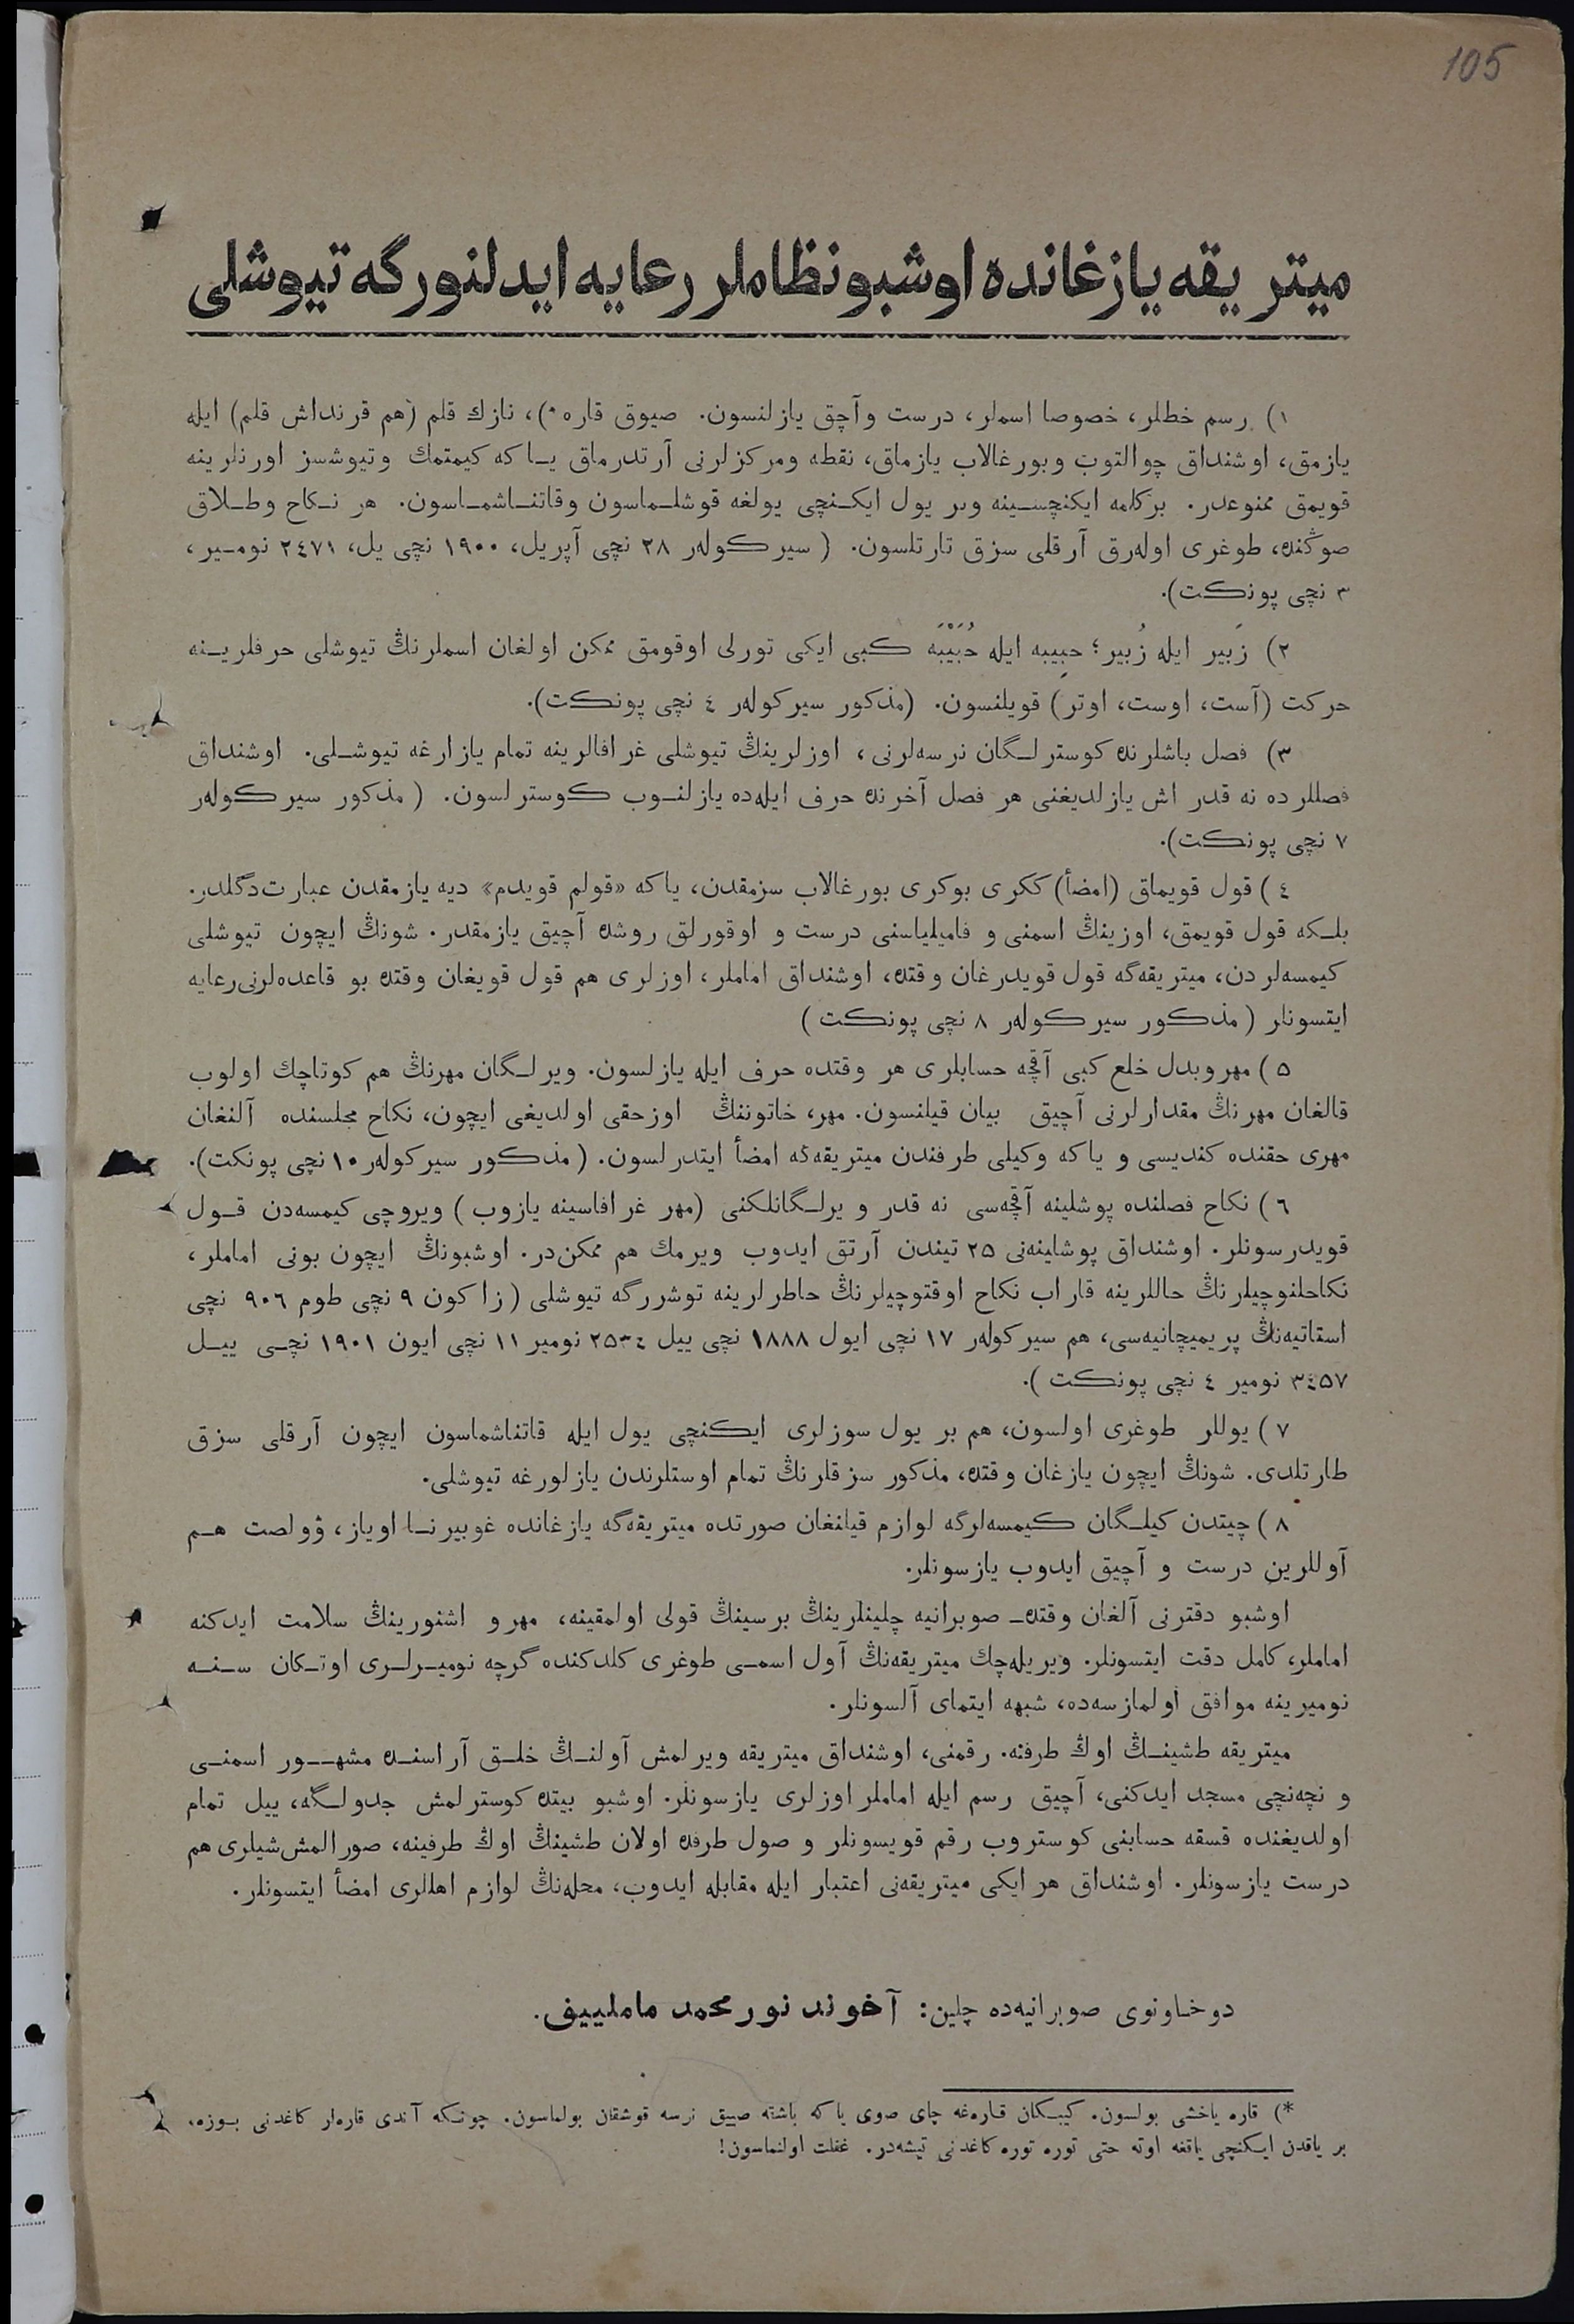 105
میتریقه یازغانده اوشبو نظاملر رعایه ایدلنورگه تیوشلی
١) رسم خطلر، خصوصا اسملر، درست وآچق یازلنسون. صیوق قاره*)، نازك قلم (هم قرنداش قلم) ایله
یازمق، اوشنداق چوالتوب وبورغالاب یازماق، نقطه ومرکزلرنی آرتدرماق یـاکه کیمتمك وتیوشسز اورنلرینه
قویمق ممنوعدر. برکلمه ایکنچسـینه وبر یول ایکـنچی یولغه قوشلـماسون وقاتنـاشمـاسون. هر نـکاح وطـلاق
صوڭنده، طوغری اوله‌رق آرقلی سزق تارتلسون. (سیرکولەر ٢٨ نچی آپریل، ١٩٠٠ نچی یل، ٢٤٧١ نومـیر،
٣ نچی پونکت).
٢) زَبیر ایله زُبیر؛ حبِیبه ایله حُبَیْبَه کبی ایکی تورلی اوقومق ممکن اولغان اسملرنڭ تیوشلی حرفلریـنه
حرکت (آست، اوست، اوتر) قویلنسون. (مذکور سیرکولەر ٤ نچی پونکت).
٣) فصل باشلرنده کوسترلـگان نرسه‌لرنی، اوزلرینڭ تیوشلی غرافالرینه تمام یازارغه تیوشـلی. اوشنداق
فصللرده نه قدر اش یازلدیغنی هر فصل آخرنده حرف ایله‌ده یازلنـوب کوسترلسون. (مذکور سیرکولەر
٧ نچی پونکت).
٤) قول قویماق (امضأ) ککری بوکری بورغالاب سزمقدن، یاکه «قولم قویدم» دیه یازمقدن عبارت‌دگلدر.
بلـکه قول قویمق، اوزینڭ اسمنی و فامیلیاسنی درست و اوقورلق روشده آچیق یازمقدر. شونڭ ایچون تیوشلی
کیمسه‌لردن، میتریقه‌گه قول قویدرغان وقتده، اوشنداق اماملر، اوزلری هم قول قویغان وقتده بو قاعده‌لرنی‌رعایه
ایتسونلر (مذکور سیرکولەر ٨ نچی پونکت)
٥) مهروبدل خلع کبی آقچه حسابلری هر وقتده حرف ایله یازلسون. ویرلـگان مهرنڭ هم کوتاچك اولوب
قالغان مهرنڭ مقدارلرنی آچیق بیان قیلنسون. مهر، خاتوننڭ اوزحقی اولدیغی ایچون، نکاح مجلسنده آلنغان
مهری حقنده کندیسی و یاکه وکیلی طرفندن میتریقه‌گه امضأ ایتدرلسون. (مذکور سیرکولەر ١٠ نچی پونکت).
٦) نکاح فصلنده پوشلینه آقچه‌سی نه قدر ویرلـگانلکنی (مهر غرافاسینه یازوب) ویروچی کیمسه‌دن قـول
قویدرسونلر. اوشنداق پوشلینه‌نی ٢٥ تیندن آرتق ایدوب ویرمك هم ممکن‌در. اوشبونڭ ایچون بونی اماملر،
نکاحلنوچیلرنڭ حاللرینه قاراب نکاح اوقتوچیلرنڭ خاطرلرینه توشررگه تیوشلی (زاکون ٩ نچی طوم ٩٠٦ نچی
استاتیه‌نڭ پریمیچانیه‌سی، هم سیرکولەر ١٧ نچی ایول ١٨٨٨ نچی ییل ٢٥٣٤ نومیر ١١ نچی ایون ١٩٠١ نچـی ییـل
٣٤٥٧ نومیر ٤ نچی پونکت).
٧) یوللر طوغری اولسون، هم بر یول سوزلری ایکنچی یول ایله قاتناشماسون ایچون آرقلی سزق
طارتلدی. شونڭ ایچون یازغان وقتده، مذکور سزقلرنڭ تمام اوستلرندن یازلورغه تیوشلی.
٨) چیتدن کیلـگان کیمسه‌لرگه لوازم قیلنغان صورتده میتریقه‌گه یازغانده غوبیرنـا اویاز، وولصت هـم
آوللرین درست و آچیق ایدوب یازسونلر.
اوشبو دفترنی آلغان وقتده صوبرانیه چلینلرینڭ برسینڭ قولی اولمقینه، مهر و اشنورینڭ سلامت ایدکنه
اماملر، کامل دقت ایتسونلر. ویریله‌چك میتریقه‌نڭ آول اسمـی طوغری کلدکنده گرچه نومیـرلـری اوتـکان سـنـه
نومیرینه موافق اولمازسه‌ده، شبهه ایتمای آلسونلر.
میتریقه طشینـڭ اوڭ طرفنه. رقمنی، اوشنداق میتریقه ویرلمش آولنـڭ خلـق آراسنـده مشهـور اسمنـی
و نچه‌نچی مسجد ایدکنی، آچیق رسم ایله اماملر اوزلری یازسونلر. اوشبو بیتده کوسترلمش جدولـگه، ییل تمام
اولدیغنده قسقه حسابنی کوستروب رقم قویسونلر و صول طرفده اولان طشینڭ اوڭ طرفینه، صورالمش‌شیلری هم
درست یازسونلر. اوشنداق هر ایکی میتریقه‌نی اعتبار ایله مقابله ایدوب، محله‌نڭ لوازم اهللری امضأ ایتسونلر.
دوخاونوی صوبرانیه‌ده چلین: آخوند نورمحمد ماملییف.
*) قاره یاخشی بولسون. کیبـکان قاره‌غه چای صوی یاکه باشقه صییق نرسه قوشقان بولماسون. چونـکه آندی قاره‌لر کاغدنی بـوزه،
بر یاقدن ایـکنچی یاقغه اوته حتی توره توره کاغدنی تیشه‌در. غفلت اولنماسون!